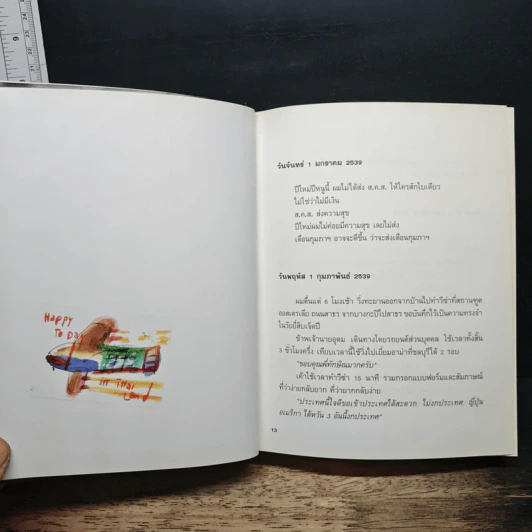 Happy
To Day
in Thai
Land
วันจันทร์ 1 มกราคม 2539
ปีใหม่ปีหนูนี้ ผมไม่ได้ส่ง ส.ค.ส. ให้ใครสักใบเดียว
ไม่ใช่ว่าไม่มีเงิน
ส.ค.ส. ส่งความสุข
ปีใหม่ผมไม่ค่อยมีความสุข เลยไม่ส่ง
เดือนกุมภาฯ อาจจะดีขึ้น ว่าจะส่งเดือนกุมภาฯ
วันพฤหัส 1 กุมภาพันธ์ 2539
ผมตื่นแต่ 6 โมงเช้า วิ่งทะยานออกจากบ้านไปทำวีซ่าที่สถานทูต
ออสเตรเลีย ถนนสาธร จากบางกะปิไปสาธร ขอบันทึกไว้เป็นความทรงจำ
ในวัยยี่สิบเจ็ดปี
ข้าพเจ้านายอุดม เดินทางโดยรถยนต์ส่วนบุคคล ใช้เวลาทั้งสิ้น
3 ชั่วโมงครึ่ง เทียบเวลานี้ใช้วิ่งไปเยี่ยมอาม่าที่ชลบุรีได้ 2 รอบ
"ขอบคุณพี่ทักษิณมากครับ"
เค้าใช้เวลาทำวีซ่า 15 นาที รวมกรอกแบบฟอร์มและสัมภาษณ์
ที่ว่าง่ายกลับยาก ที่ว่ายากกลับง่าย
"ประเทศนี้ใจดีขอเข้าประเทศได้สะดวก ไม่งกประเทศ ญี่ปุ่น
อเมริกา ไต้หวัน 3 อันนี้งกประเทศ"
13